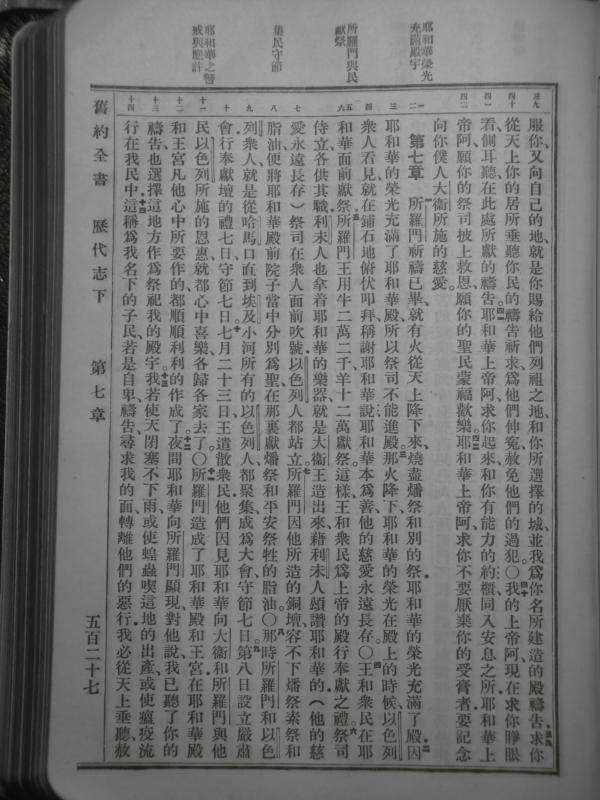 耶和華榮光
充滿殿宇
所羅門與民
獻祭
集民守節
耶和華之誓
戒與應許
三九
四十
四一
四二
一
二
三
四
五
六
七
八
九
十
十一
十二
十三
十四
服你又向自己的地就是你賜給他們列祖之地和你所選擇的城並我爲你名所建造的殿禱告求你
從天上你的居所垂聽你民的禱告祈求爲他們伸寃赦免他們的過犯〇我的上帝阿現在求你睜眼
看側耳聽在此處所獻的禱告耶和華上帝阿求你起來和你有能力的約櫃同入安息之所耶和華上
帝阿願你的祭司披上救恩願你的聖民蒙福歡樂耶和華上帝阿求你不要厭棄你的受膏者要記念
向你僕人大衞所施的慈愛
第七章 所羅門祈禱已畢就有火從天上降下來燒盡燔祭和別的祭耶和華的榮光充滿了殿因
耶和華的榮光充滿了耶和華殿所以祭司不能進殿那火降下耶和華的榮光在殿上的時候以色列
衆人看見就在鋪石地俯伏叩拜稱謝耶和華說耶和華本爲善他的慈愛永遠長存〇王和衆民在耶
和華面前獻祭所羅門王用牛二萬二千羊十二萬獻祭這樣王和衆民爲上帝的殿行奉獻之禮祭司
侍立各供其職利未人也拿着耶和華的樂器就是大衞王造出來藉利未人頌讚耶和華的（他的慈
愛永遠長存）祭司在衆人面前吹號以色列人都站立所羅門因他所造的銅壇容不下燔祭素祭和
脂油便將耶和華殿前院子當中分別爲聖在那裏獻燔祭和平安祭牲的脂油〇那時所羅門和以色
列衆人就是從哈馬口直到埃及小河所有的以色列人都聚集成爲大會守節七日第八日設立嚴肅
會行奉獻壇的禮七日守節七日七月二十三日王遣散衆民他們因見耶和華向大衞和所羅門與他
民以色列所施的恩惠就都心中喜樂各歸各家去了〇所羅門造成了耶和華殿和王宮在耶和華殿
和王宮凡他心中所要作的都順順利利的作成了夜間耶和華向所羅門顯現對他說我已聽了你的
禱告也選擇這地方作爲祭祀我的殿宇我若使天閉塞不下雨或使蝗蟲喫這地的出產或使瘟疫流
行在我民中這稱爲我名下的子民若是自卑禱告尋求我的面轉離他們的惡行我必從天上垂聽赦
舊約全書 歷代志下 第七章 五百二十七